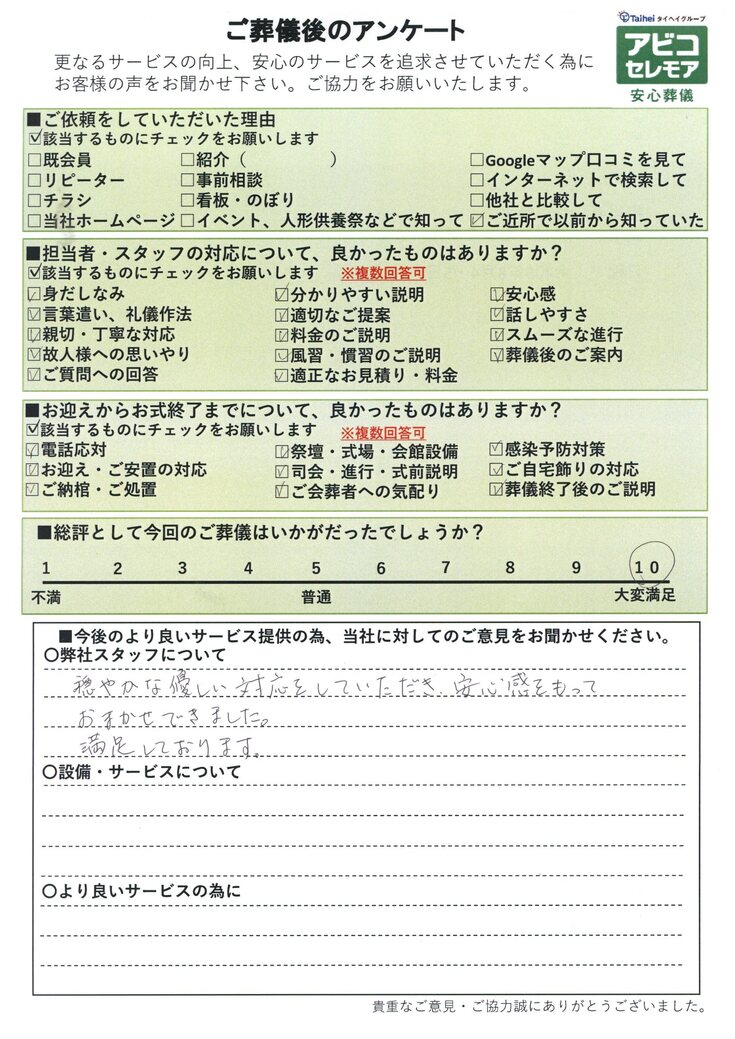 ご葬儀後のアンケート
Taihei タイヘイグループ
アビコ
セレモア
安心葬儀
更なるサービスの向上、安心のサービスを追求させていただく為に
お客様の声をお聞かせ下さい。ご協力をお願いいたします。
■ご依頼をしていただいた理由
☑該当するものにチェックをお願いします
□既会員 □紹介（ ） □Googleマップ口コミを見て
□リピーター □事前相談 □インターネットで検索して
□チラシ □看板・のぼり □他社と比較して
□当社ホームページ □イベント、人形供養祭などで知って ☑ご近所で以前から知っていた
■担当者・スタッフの対応について、良かったものはありますか？
☑該当するものにチェックをお願いします ※複数回答可
☑身だしなみ ☑分かりやすい説明 ☑安心感
☑言葉遣い、礼儀作法 ☑適切なご提案 ☑話しやすさ
☑親切・丁寧な対応 ☑料金のご説明 ☑スムーズな進行
☑故人様への思いやり ☑風習・慣習のご説明 ☑葬儀後のご案内
☑ご質問への回答 ☑適正なお見積り・料金
■お迎えからお式終了までについて、良かったものはありますか？
☑該当するものにチェックをお願いします ※複数回答可
☑電話応対 ☑祭壇・式場・会館設備 ☑感染予防対策
☑お迎え・ご安置の対応 ☑司会・進行・式前説明 ☑ご自宅飾りの対応
☑ご納棺・ご処置 ☑ご会葬者への気配り ☑葬儀終了後のご説明
■総評として今回のご葬儀はいかがだったでしょうか？
1 2 3 4 5 6 7 8 9 10
不満 普通 大変満足
■今後のより良いサービス提供の為、当社に対してのご意見をお聞かせください。
〇弊社スタッフについて
穏やかな優しい対応をしていただき、安心感をもって
おまかせできました。
満足しております。
〇設備・サービスについて
〇より良いサービスの為に
貴重なご意見・ご協力誠にありがとうございました。